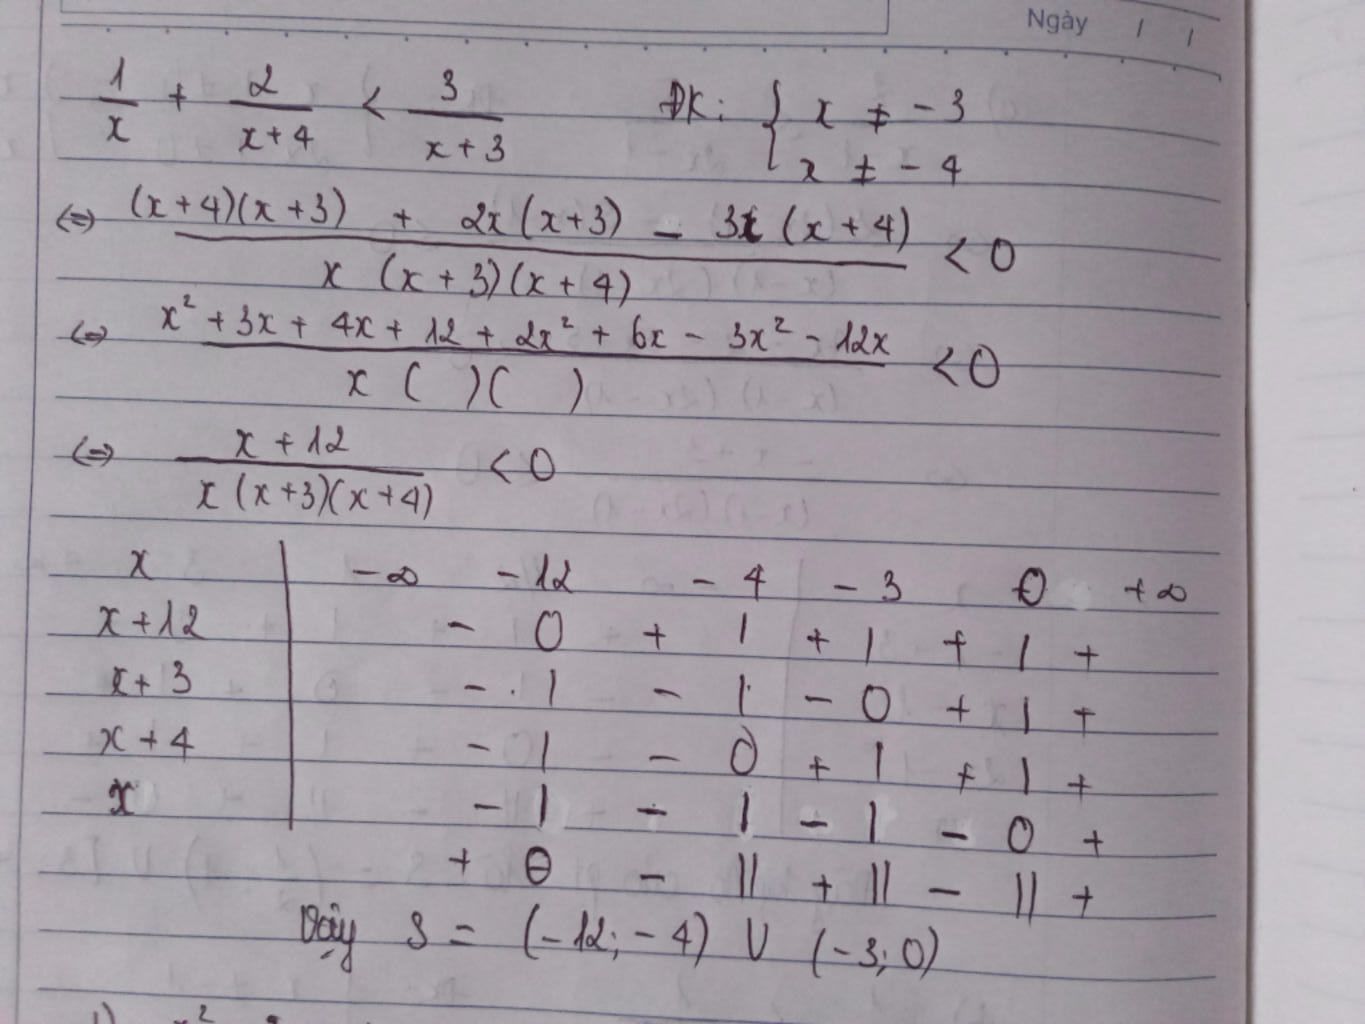 Ngày / /
1/x + 2/(x+4) < 3/(x+3) ĐK: { x ≠ -3
x ≠ -4
⇔ ((x+4)(x+3) + 2x(x+3) - 3x(x+4))/(x(x+3)(x+4)) < 0
⇔ (x² + 3x + 4x + 12 + 2x² + 6x - 3x² - 12x)/(x ( )( )) < 0
⇔ (x + 12)/(x(x+3)(x+4)) < 0
x | -∞ -12 -4 -3 0 +∞
x+12 | - 0 + | + | + | +
x+3 | - | - | - 0 + | +
x+4 | - | - 0 + | + | +
x | - | - | - | - 0 +
+ 0 - || + || - || +
Vậy S = (-12; -4) U (-3; 0)